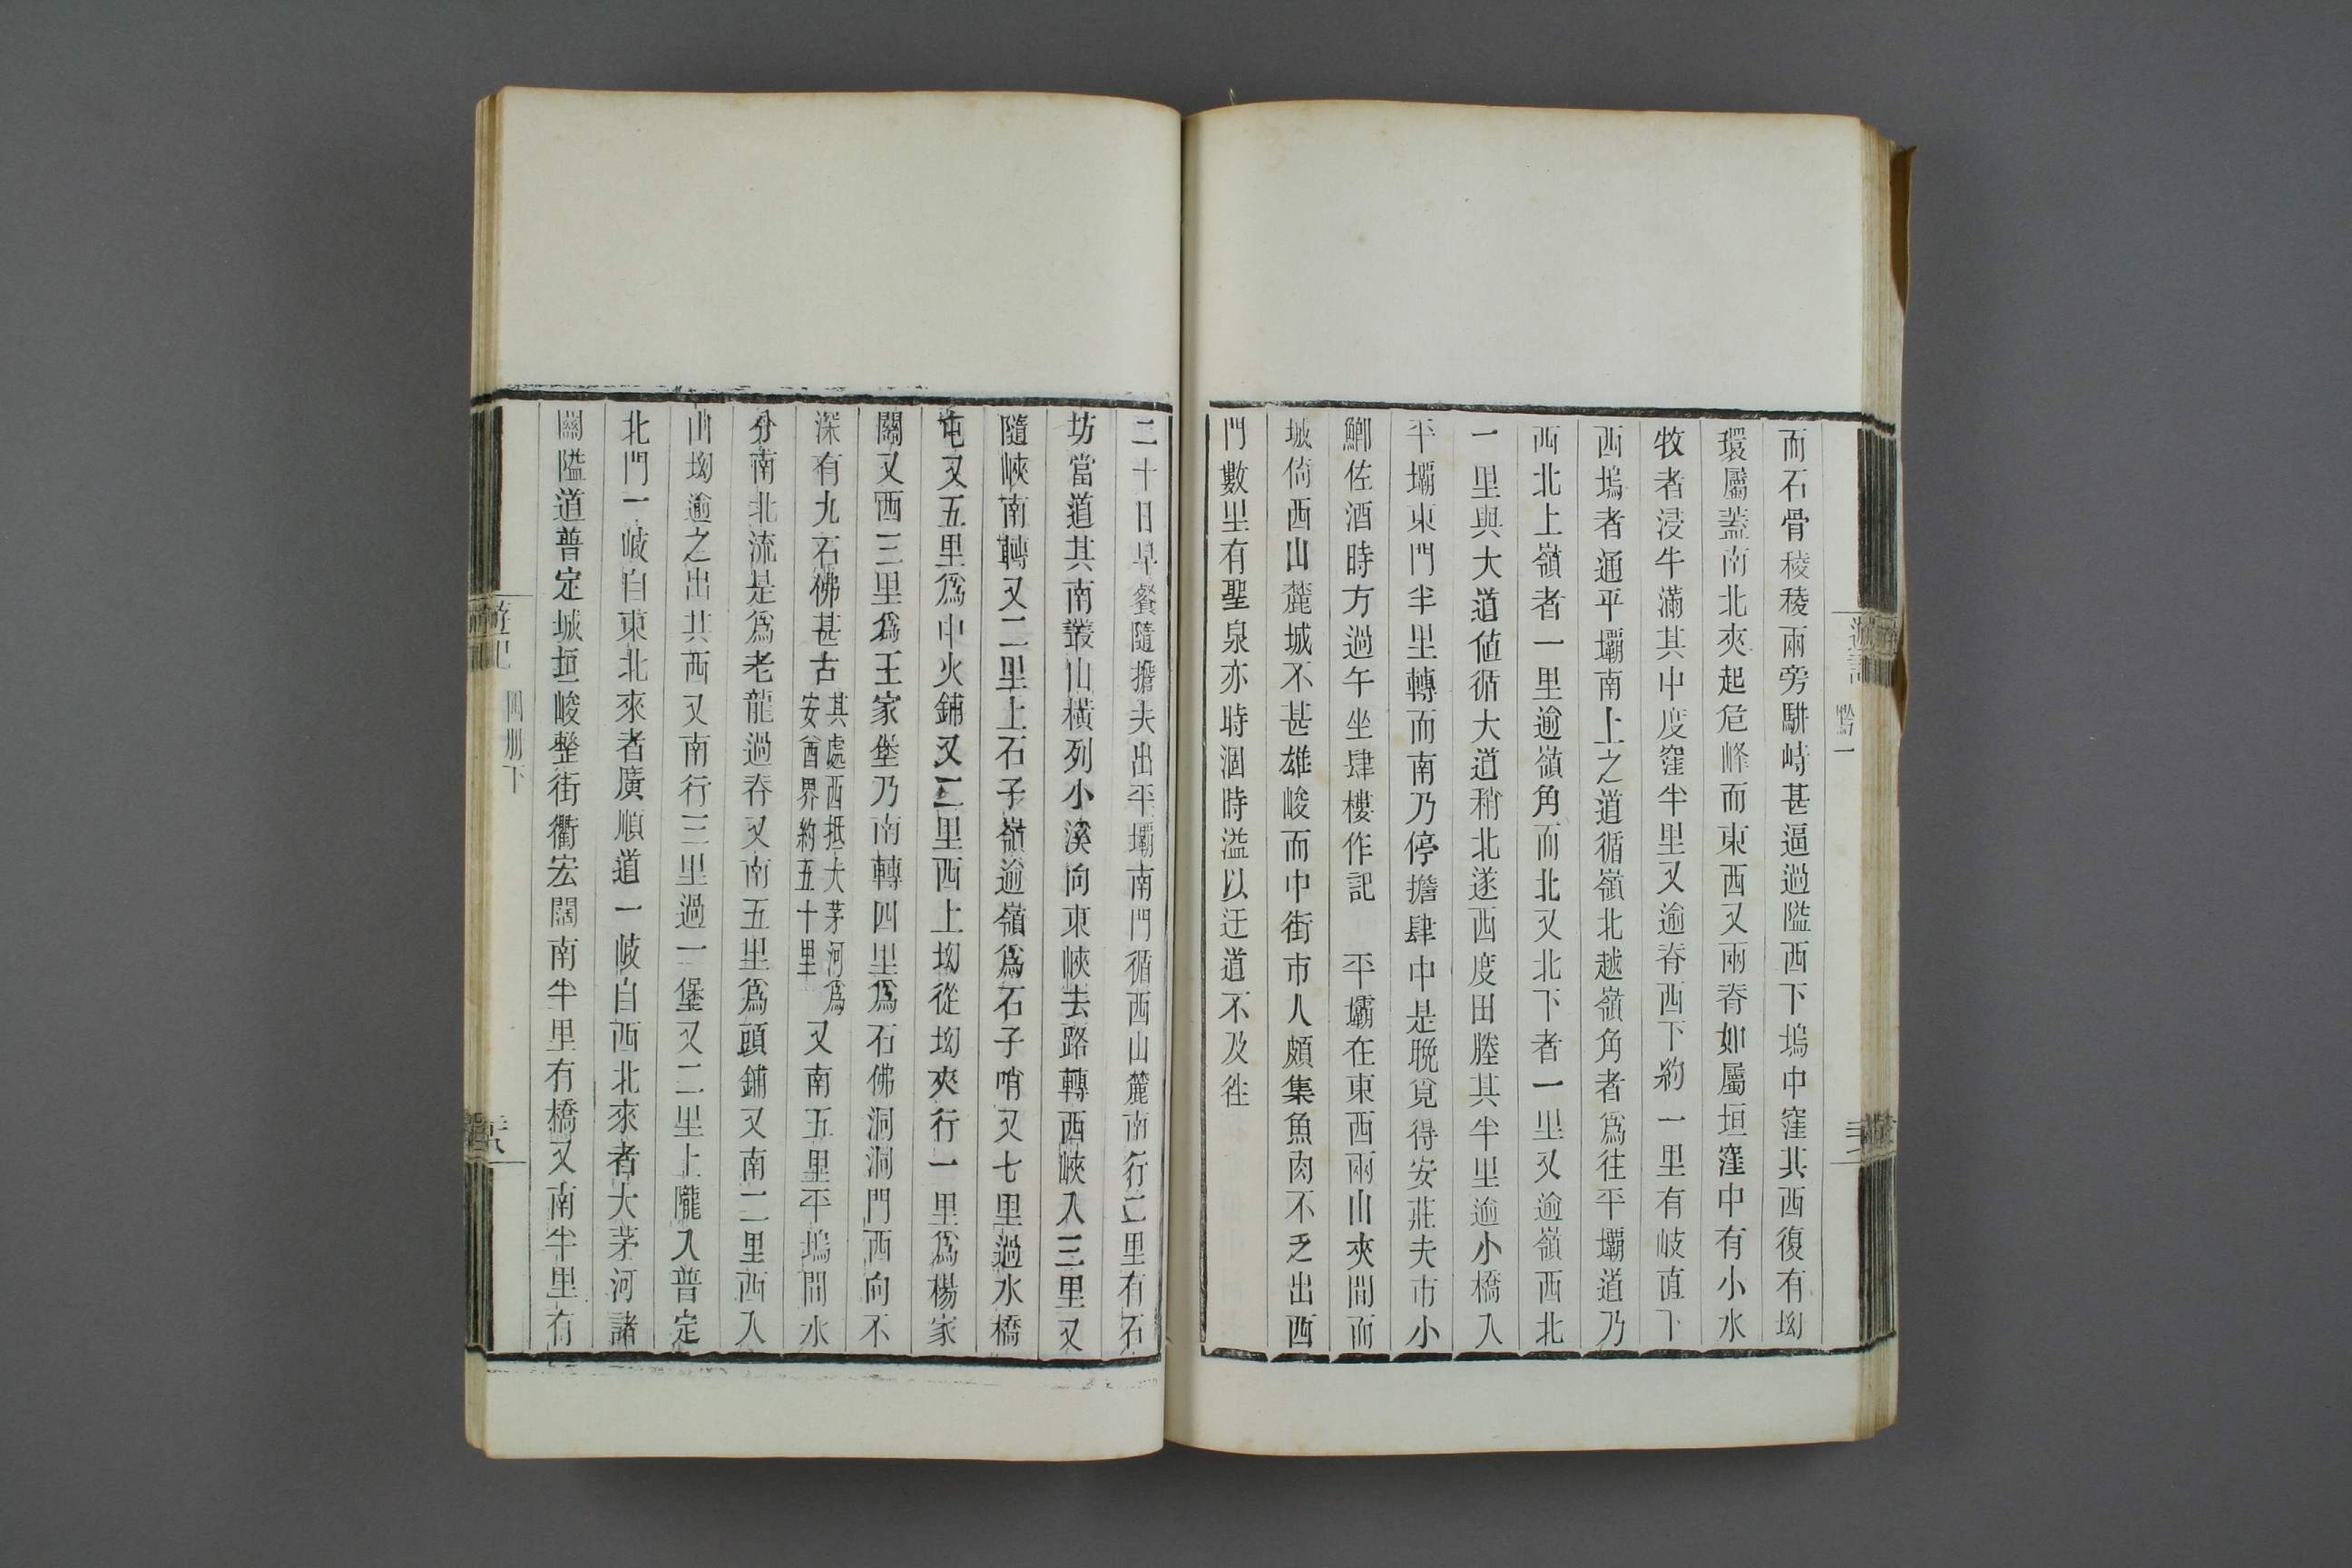 黔一
而石骨稜稜兩旁駢峙甚逼過隘西下塢中窪其西復有坳
環屬蓋南北夾起危峰而東西又兩脊如屬垣窪中有小水
牧者浸牛滿其中度窪半里又逾脊西下約一里有岐直下
西塢者通平壩南上之道循嶺北越嶺角者為往平壩道乃
西北上嶺者一里逾嶺角而北又北下者一里又逾嶺西北
一里與大道値循大道稍北遂西度田塍其半里逾小橋入
平壩東門半里轉而南乃停擔肆中是晚覓得安莊夫市小
鯽佐酒時方過午坐肆樓作記　平壩在東西兩山夾間而
城倚西山麓城不甚雄峻而中街市人頗集魚肉不乏出西
門數里有聖泉亦時涸時溢以迂道不及徃
二十日早餐隨擔夫出平壩南門循西山麓南行二里有石
坊當道其南叢山橫列小溪向東峽去路轉西峽入三里又
隨峽南轉又二里上石子嶺逾嶺爲石子哨又七里過水橋
屯又五里爲中火鋪又二里西上坳從坳夾行一里爲楊家
關又西三里爲王家堡乃南轉四里爲石佛洞洞門西向不
深有九石佛甚古其處西抵大茅河爲安酋界約五十里又南五里平塢間水
分南北流是爲老龍過脊又南五里爲頭鋪又南二里西入
山坳逾之出其西又南行三里過一堡又二里上隴入普定
北門一岐自東北來者廣順道一岐自西北來者大茅河諸
關隘道普定城垣峻整街衢宏闊南半里有橋又南半里有
四册下